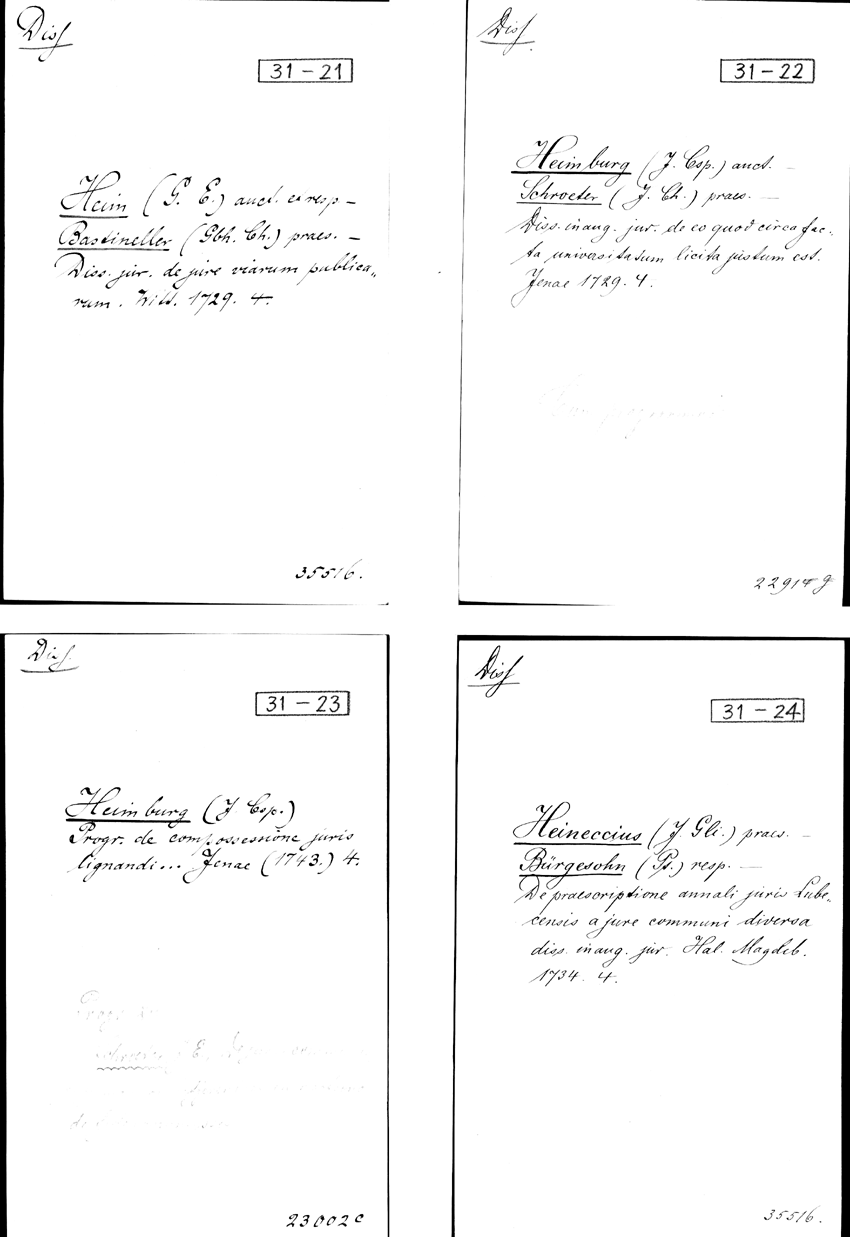 Diss
31-21
Heim (G. E.) auct. et resp —
Bastineller (Gbh. Ch.) praes. —
Diss. jur. de jure viarum publica„
rum. Vitt. 1729. 4.
35516.
Diss.
31-22
Heimburg (J. Csp.) auct. —
Schroeter (J. Ch.) praes. —
Diss. inaug. jur. de eo quod circa fac„
ta universitatum licita justum est.
Jenae 1729. 4.
22914 g
Diss.
31-23
Heimburg (J Csp.)
Progr. de compossessione juris
lignandi... Jenae (1743.) 4.
23002 c
Diss
31-24
Heineccius (J. Gli.) praes. —
Bürgesohn (Pt.) resp. —
De praescriptione annali juris Lube„
censis a jure communi diversa
diss. inaug. jur. Hal. Magdeb.
1734. 4.
35516.